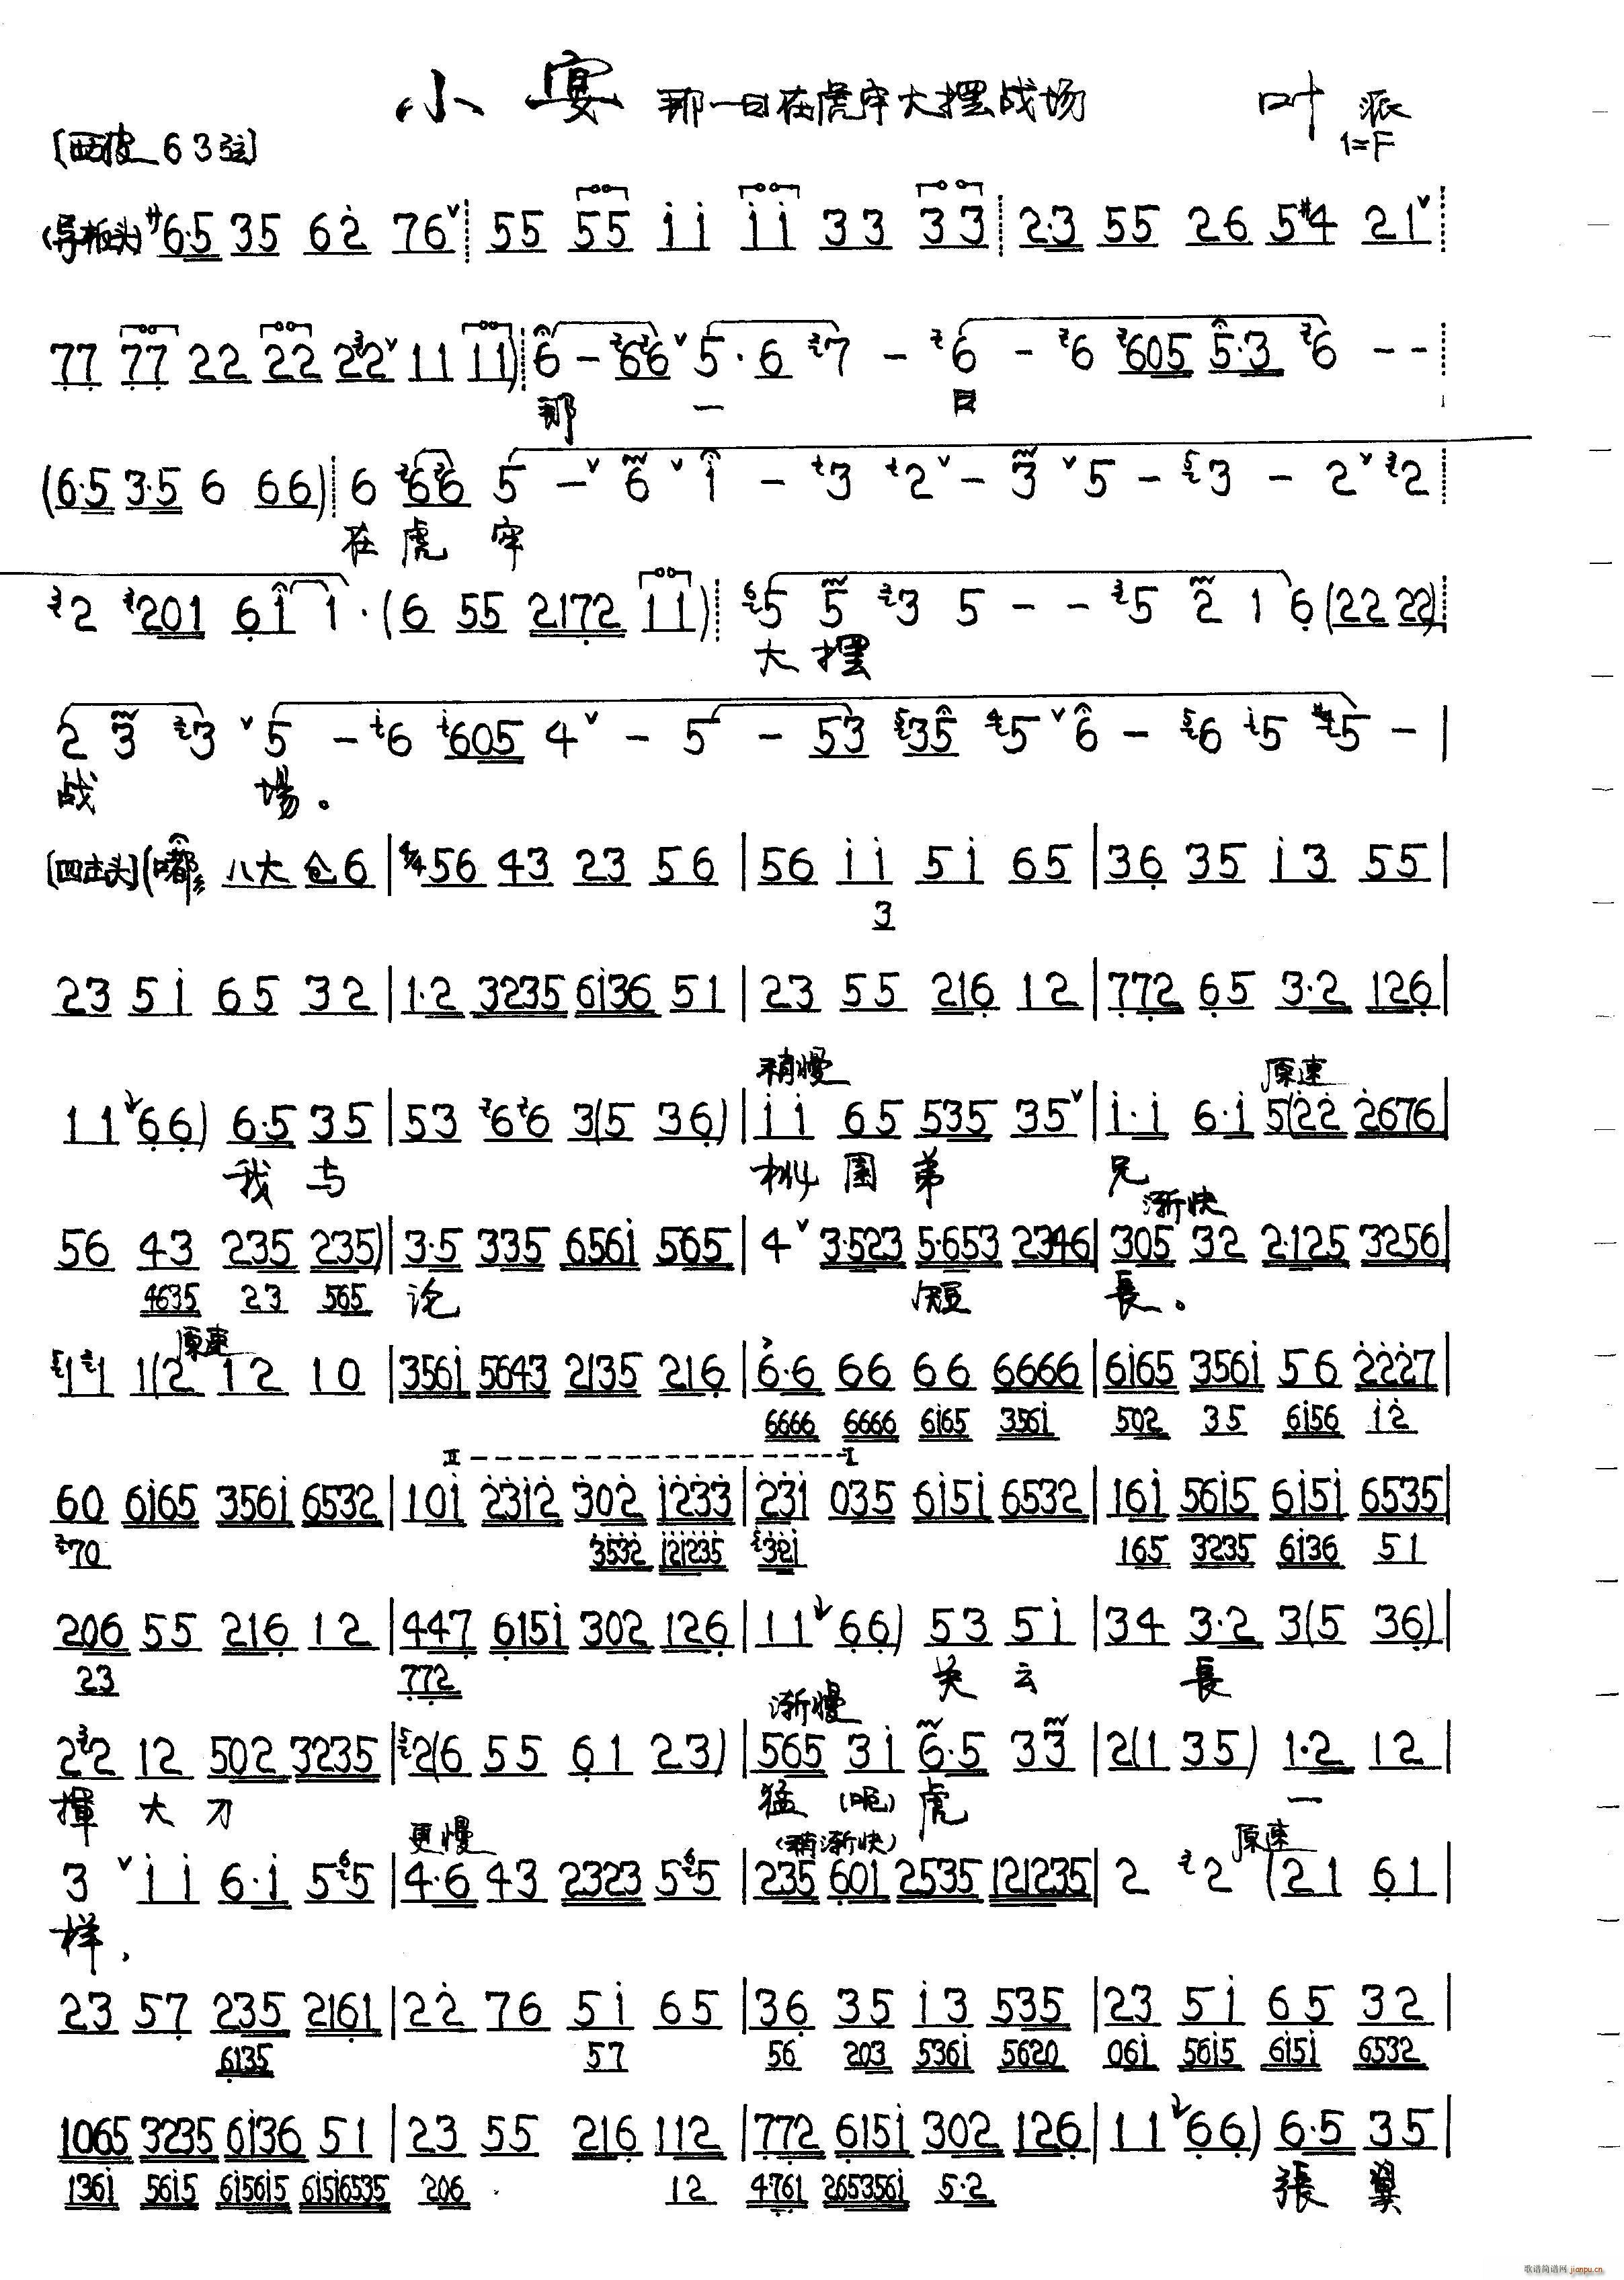 小宴 那一日在虎牢大摆战场 叶派
[西皮 63弦] 1=F
(导板头) 廿 6·5 35 62 76 ∨ 55 55 ii ii 33 33 2·3 55 26 5#4 21 ∨
77 77 22 22 22 ∨ 11 11) 6 – 66 ∨ 5 · 6 7 – 6 – 6 605 5·3 6 – –
那 一 日
(6·5 3·5 6 66) 6 66 5 – ∨ 6 ∨ i – 3 2 ∨ – 3 ∨ 5 – 3 – 2 ∨ 2
在 虎 牢
2 201 61 1 · (6 55 2172 11) 5 5 3 5 – – 5 2 1 6 (22 22)
大 摆
2 3 3 ∨ 5 – 6 605 4 ∨ – 5 – 53 35 5 ∨ 6 – 6 5 5 – |
战 場。
[四击头] (嘟 八大 仓6 | 4/4 56 43 23 56 | 56 ii 5i 65 | 36 35 i3 55 |
3
23 5i 65 32 | 1·2 3235 6i36 51 | 23 55 216 12 | 772 65 3·2 126 |
稍慢 原速
11 66) 6·5 35 | 53 66 3(5 36) | ii 65 535 35 ∨ | i·i 6·i 5(22 2676 |
我 与 桃 园 弟 兄
渐快
56 43 235 235) | 3·5 335 656i 565 | 4 ∨ 3·523 5·653 2346 | 305 32 2·125 3256 |
4635 23 565 论 短 長。
原速
11 1(2 12 10 | 356i 5643 2135 216 | 6·6 66 66 6666 | 6i65 356i 56 2227 |
6666 6666 6i65 356i 502 35 6i56 i2
II - - - - - - I
60 6i65 356i 6532 | 10i 23i2 302 i233 | 23i 035 6i5i 6532 | 16i 56i5 6i5i 6535 |
70 3532 i2i235 32i 165 3235 6i36 51
206 55 216 12 | 447 615i 302 126 | 11 66) 53 5i | 34 3·2 3(5 36) |
23 772 关 云 長
渐慢
22 12 502 3235 | 2(6 55 61 23) | 565 3i 6·5 33 | 2(1 35) 1·2 12 |
揮 大 刀 猛 (呃) 虎 一
更慢 (稍渐快) 原速
3 ∨ ii 6·i 55 | 4·6 43 2323 55 | 235 601 2535 121235 | 2 2 (21 61 |
样,
23 57 235 2161 | 22 76 5i 65 | 36 35 i3 535 | 23 5i 65 32 |
6135 57 56 203 536i 5620 06i 56i5 6i5i 6532
1065 3235 6i36 51 | 23 55 216 112 | 772 615i 302 126 | 11 66) 6·5 35 |
136i 56i5 6i56i5 6i5i6535 206 12 4761 265356i 5·2 張 翼
歌谱简谱网 jianpu.cn